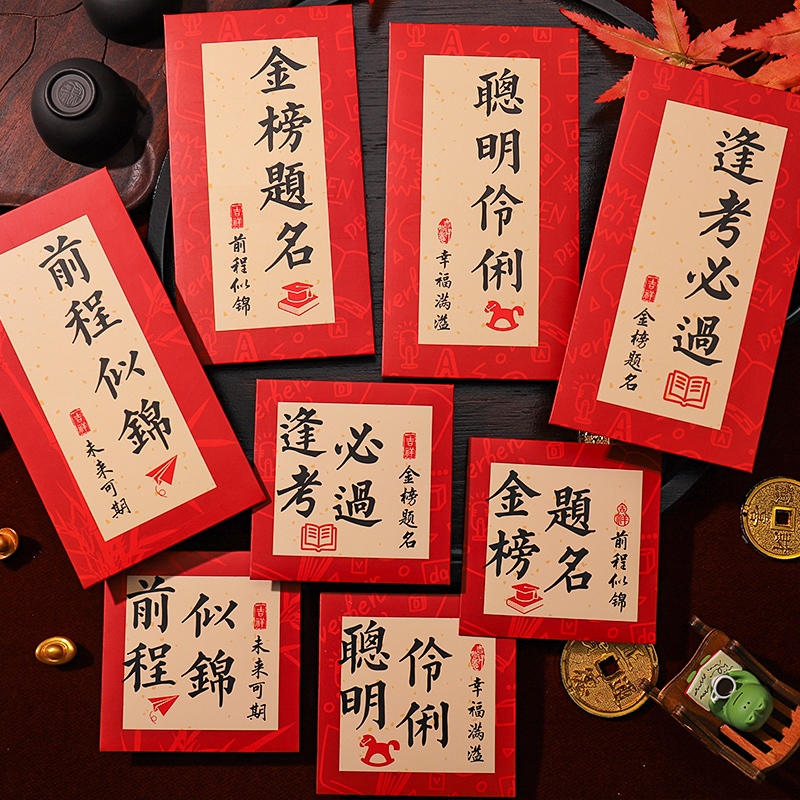 金榜題名
吉祥
前程似錦
聰明伶俐
幸福满溢
逢考必過
吉祥
金榜题名
前程似錦
吉祥
未来可期
逢考
必過
吉祥
金榜题名
金榜
題名
吉祥
前程似锦
前程
似錦
吉祥
未来可期
聰明
伶俐
幸福满溢